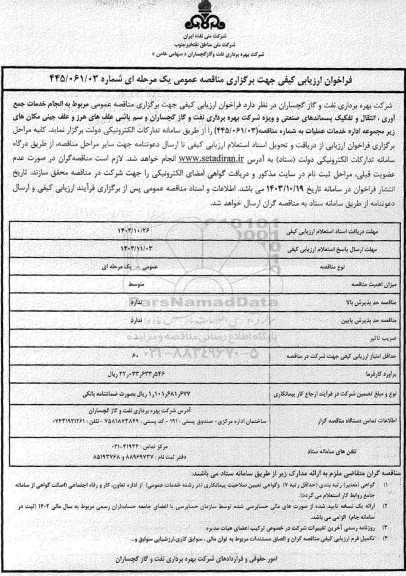 شرکت ملی نفت ایران
شرکت ملی مناطق نفتخیز جنوب
شرکت بهره برداری نفت و گاز گچساران « سهامی خاص »
فراخوان ارزیابی کیفی جهت برگزاری مناقصه عمومی یک مرحله ای شماره ۴۴۵/۰۶۱/۰۳
شرکت بهره برداری نفت و گاز گچساران در نظر دارد فراخوان ارزیابی کیفی جهت برگزاری مناقصه عمومی مربوط به انجام خدمات جمع
آوری ، انتقال و تفکیک پسماندهای صنعتی و ویژه شرکت بهره برداری نفت و گاز گچساران و سم پاشی علف های هرز و علف چینی مکان های
زیر مجموعه اداره خدمات عملیات به شماره مناقصه (۴۴۵/۰۶۱/۰۳) را از طریق سامانه تدارکات الکترونیکی دولت برگزار نماید. کلیه مراحل
برگزاری فراخوان ارزیابی از دریافت و تحویل اسناد استعلام ارزیابی کیفی تا ارسال دعوتنامه جهت سایر مراحل مناقصه، از طریق درگاه
سامانه تدارکات الکترونیکی دولت (ستاد) به آدرس www.setadiran.ir انجام خواهد شد. لازم است مناقصه‌گران در صورت عدم
عضویت قبلی، مراحل ثبت نام در سایت مذکور و دریافت گواهی امضای الکترونیکی را جهت شرکت در مناقصه محقق سازند. تاریخ
انتشار فراخوان در سامانه تاریخ ۱۴۰۳/۱۰/۱۹ می باشد. اطلاعات و اسناد مناقصه عمومی پس از برگزاری فرآیند ارزیابی کیفی و ارسال
دعوتنامه از طریق سامانه ستاد به مناقصه گران ارسال خواهد شد.
مهلت دریافت اسناد استعلام ارزیابی کیفی ۱۴۰۳/۱۰/۲۶
مهلت ارسال پاسخ استعلام ارزیابی کیفی ۱۴۰۳/۱۱/۰۳
نوع مناقصه عمومی - یک مرحله ای
میزان اهمیت مناقصه متوسط
مناقصه حد پذیرش بالا ندارد
مناقصه حد پذیرش پایین ندارد
ضریب تاثیر
حداقل امتیاز ارزیابی کیفی جهت شرکت در مناقصه ۶۰
برآورد کارفرما ۴۲,۰۳۳,۶۳۳,۵۴۶ ریال
نوع و مبلغ تضمین شرکت در فرآیند ارجاع کار پیمانکاری ۱,۱۰۱,۶۸۱,۶۷۷ ریال بصورت ضمانتنامه بانکی
اطلاعات تماس دستگاه مناقصه گزار آدرس شرکت بهره برداری نفت و گاز گچساران
ساختمان اداره مرکزی - صندوق پستی : ۱۹۱ - کد پستی : ۷۵۸۱۸۷۳۸۴۹ - تلفن : ۰۷۴۳۱۹۲۱۲۶۱
تلفن های سامانه ستاد مرکز تماس : ۴۱۹۳۴-۰۲۱
دفتر ثبت نام : ۸۸۹۶۹۷۳۷ و ۸۵۱۹۳۷۶۸
مناقصه گران متقاضی ملزم به ارائه مدارک زیر از طریق سامانه ستاد می باشند.
۱) گواهی (معتبر) رتبه بندی (حداقل رتبه ۷) وگواهی تعیین صلاحیت پیمانکاری (در رشته خدمات عمومی) از اداره تعاون، کار و رفاه اجتماعی (اصالت گواهی از سامانه
جامع روابط کار استعلام می گردد).
۲) ارائه یک نسخه تایید شده از صورت های مالی حسابرسی شده توسط سازمان حسابرسی یا اعضای جامعه حسابداران رسمی مربوط به سال مالی ۱۴۰۲ (ثبت در
سامانه جام) الزامی می باشد.
۳) روزنامه رسمی آخرین تغییرات شرکت در خصوص ترکیب اعضای هیات مدیره
۴) تکمیل فرم ارزیابی کیفی مناقصه گران و الصاق مستندات مربوط به توان مالی ، سوابق کاری،ارزشیابی سوابق و..
امور حقوقی و قراردادهای شرکت بهره برداری نفت و گاز گچساران
ParsNamadData
پایگاه اطلاع رسانی مناقصه و مزایده
۰۲۱-۸۸۳۴۹۶۷۰-۵